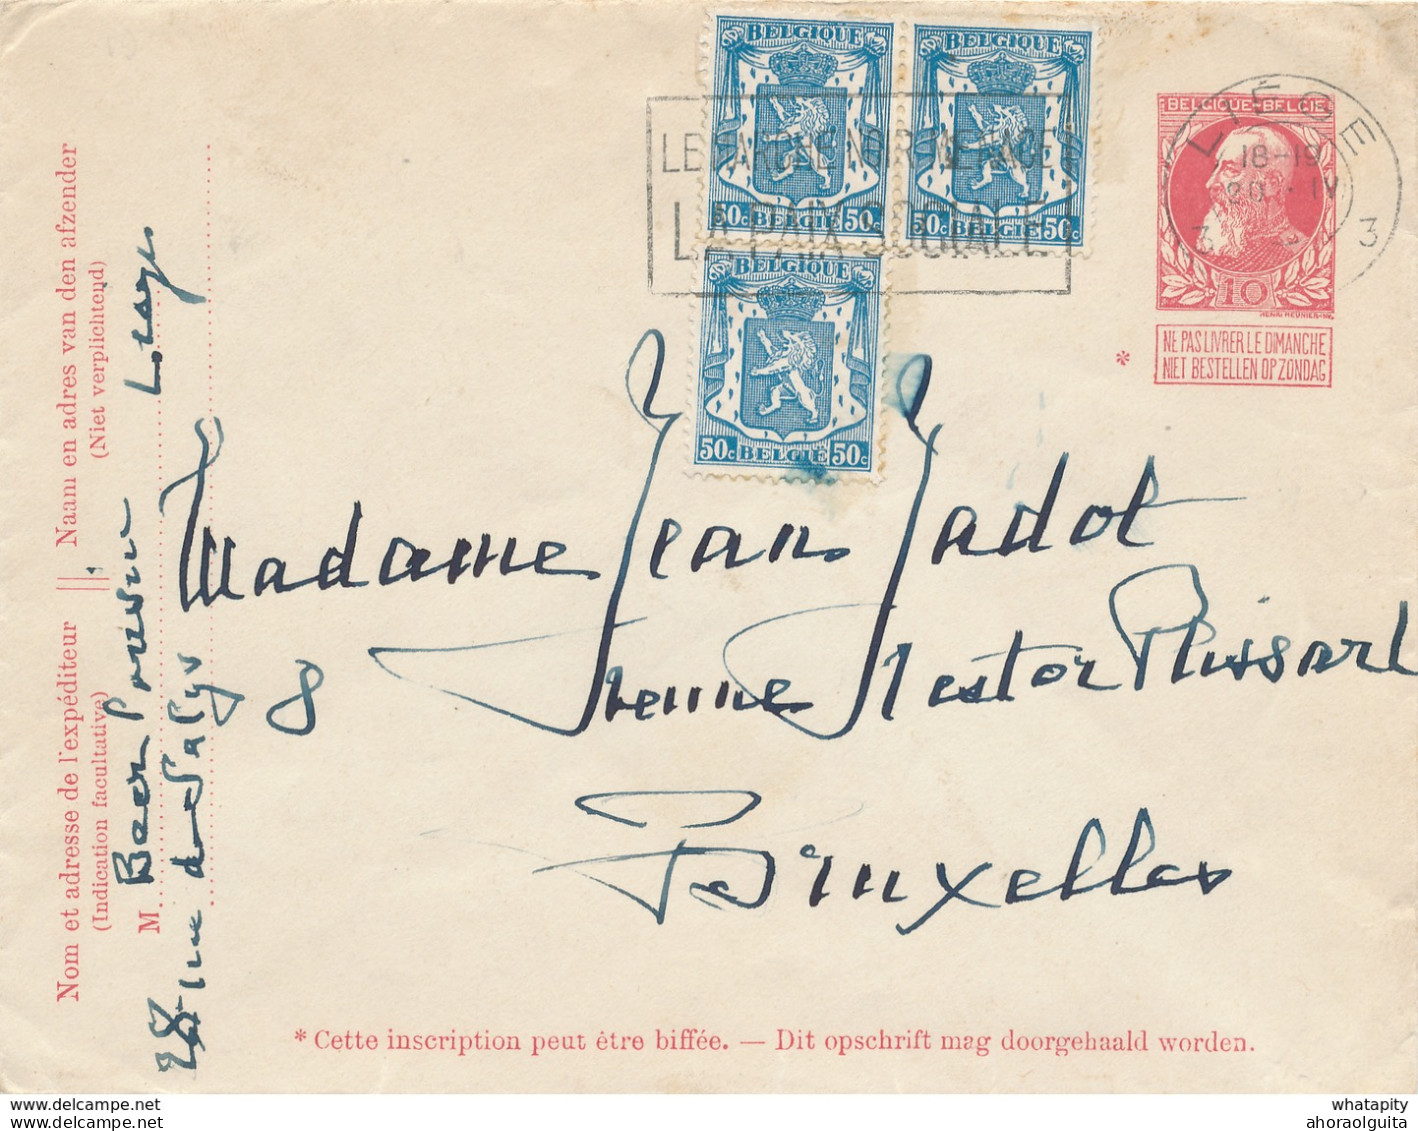 BELGIQUE
BELGIQUE
50c BELGIË 50c
50c BELGIË 50c
BELGIQUE
50c BELGIË 50c
LA PAIX SOCIALE
BELGIQUE-BELGIE
10
HENRI MEUNIER-INV.
LIÉGE
18-19
20 IV
3 3
* NE PAS LIVRER LE DIMANCHE
NIET BESTELLEN OP ZONDAG
Madame Jean Jadot
8 Avenue Nestor Plissart
Bruxelles
Nom et adresse de l'expéditeur || Naam en adres van den afzender
(Indication facultative) (Niet verplichtend)
M. Baer
28 rue de
* Cette inscription peut être biffée. — Dit opschrift mag doorgehaald worden.
whatapity
ahoraolguita